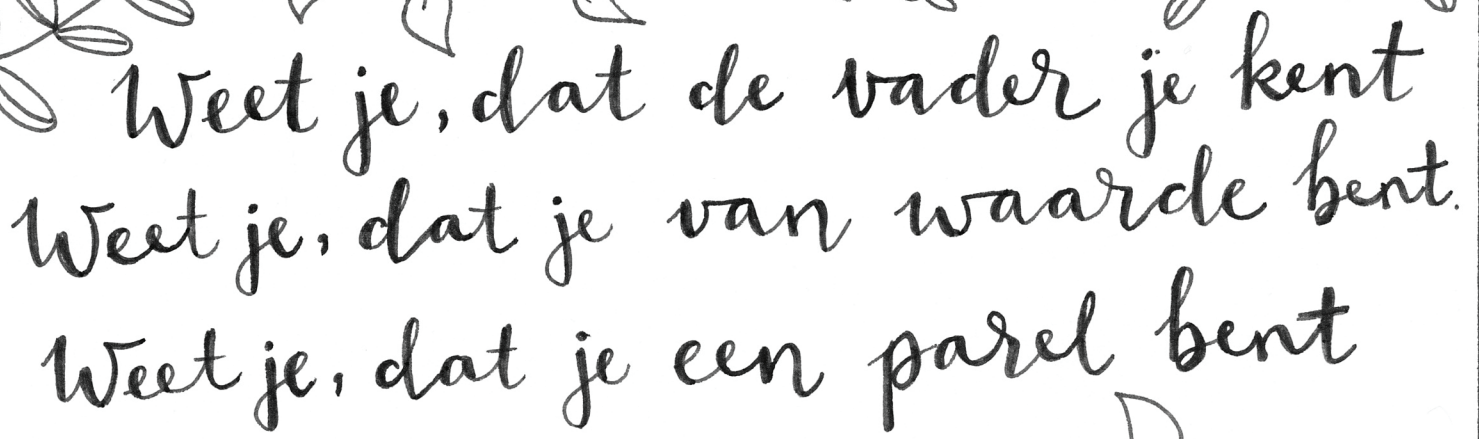 Weet je, dat de vader je kent
Weet je, dat je van waarde bent.
Weet je, dat je een parel bent